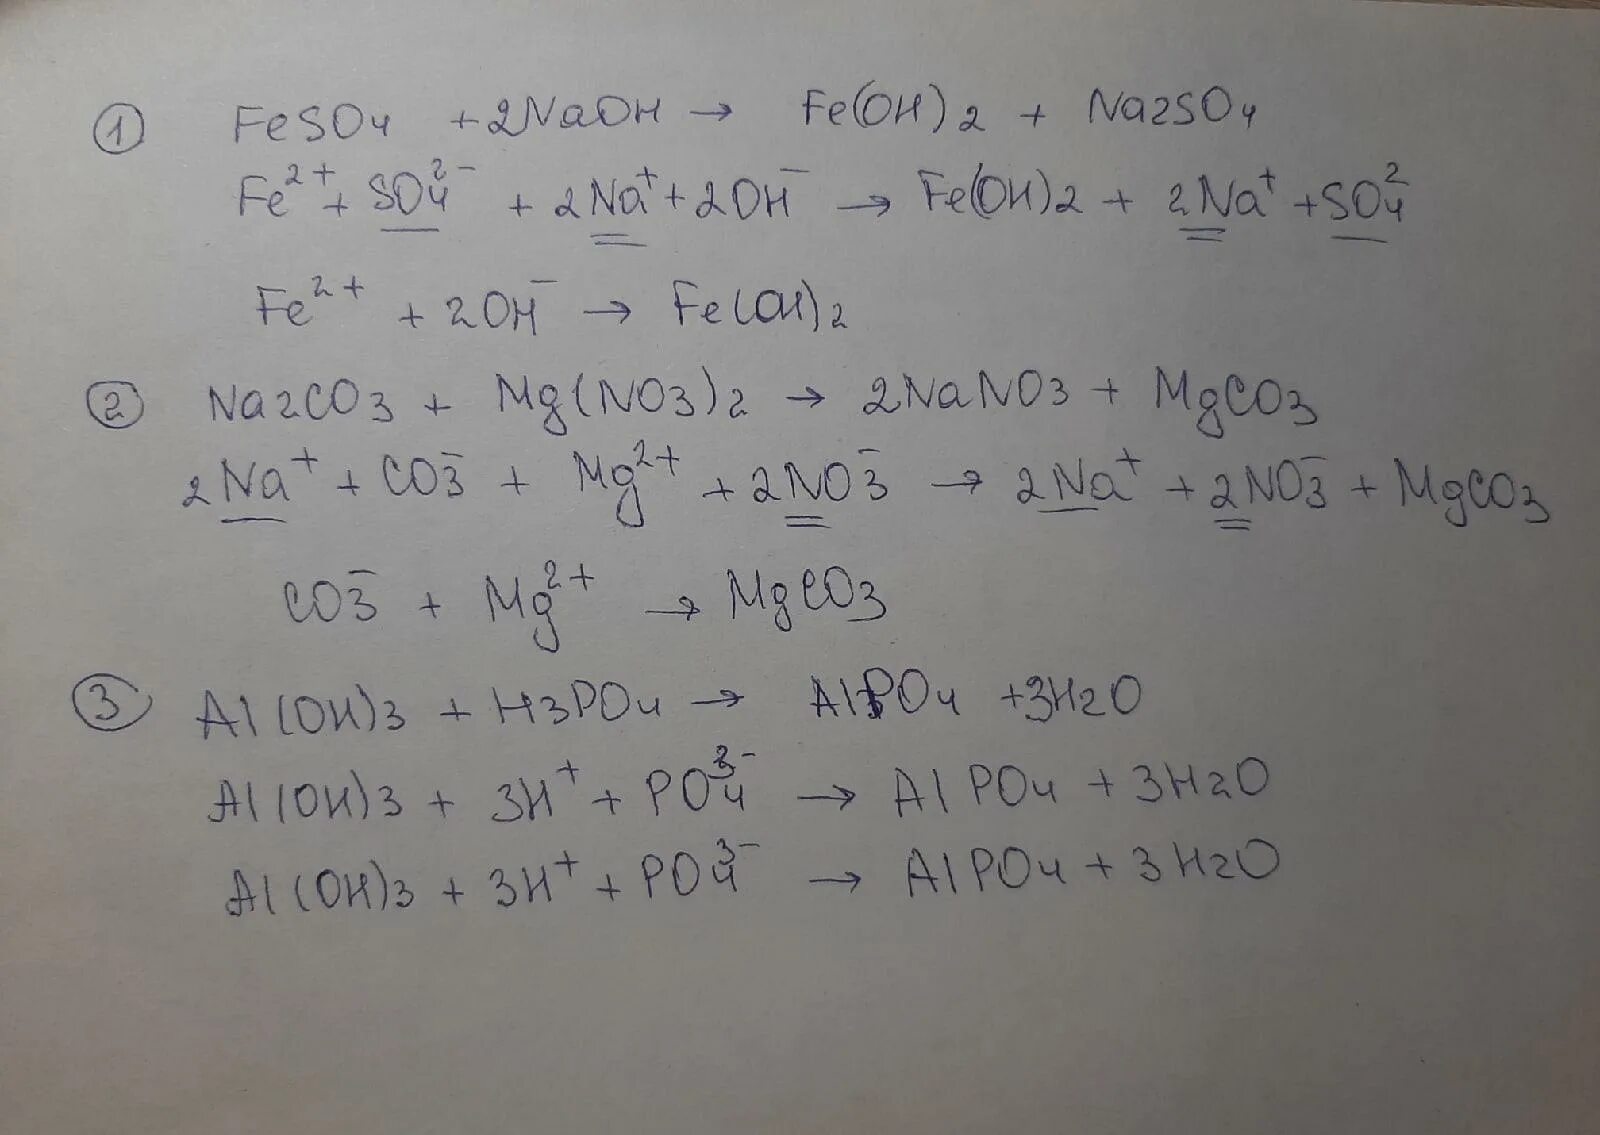 ① FeSO₄ + 2NaOH → Fe(OH)₂ + Na₂SO₄
Fe²⁺ + SO₄²⁻ + 2Na⁺ + 2OH⁻ → Fe(OH)₂ + 2Na⁺ + SO₄²
Fe²⁺ + 2OH⁻ → Fe(OH)₂
② Na₂CO₃ + Mg(NO₃)₂ → 2NaNO₃ + MgCO₃
2Na⁺ + CO₃⁻ + Mg²⁺ + 2NO₃⁻ → 2Na⁺ + 2NO₃⁻ + MgCO₃
CO₃⁻ + Mg²⁺ → MgCO₃
③ Al(OH)₃ + H₃PO₄ → AlPO₄ + 3H₂O
Al(OH)₃ + 3H⁺ + PO₄³⁻ → AlPO₄ + 3H₂O
Al(OH)₃ + 3H⁺ + PO₄³⁻ → AlPO₄ + 3H₂O